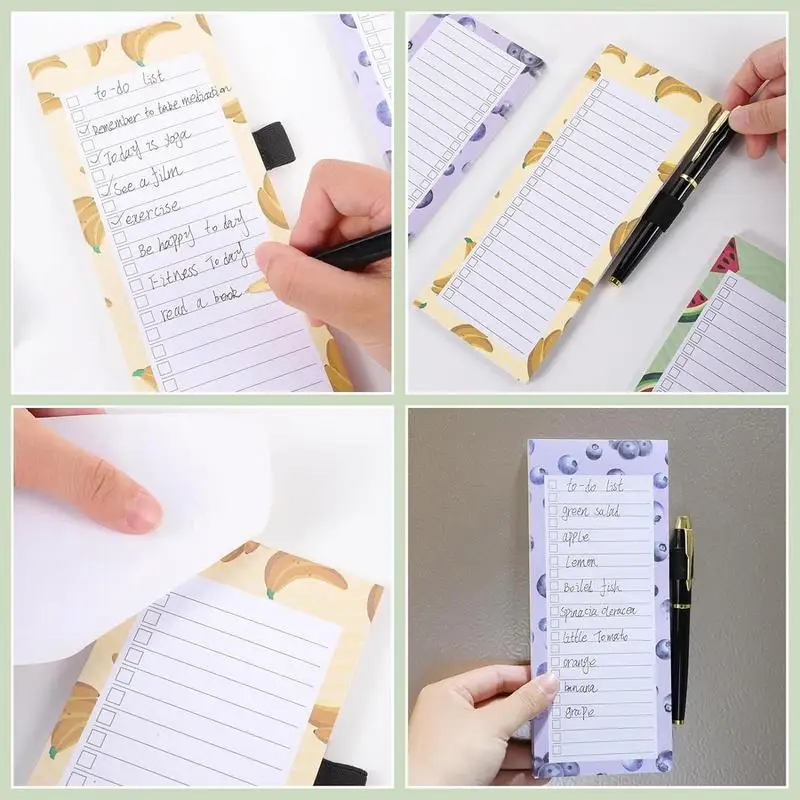 to-do list
Remember to take medication
Today is yoga
See a film
exercise
Be happy today
Fitness Today
read a book
to-do list
green salad
apple
Lemon
Boiled fish
Spinacia oleracea
little Tomato
orange
banana
grape